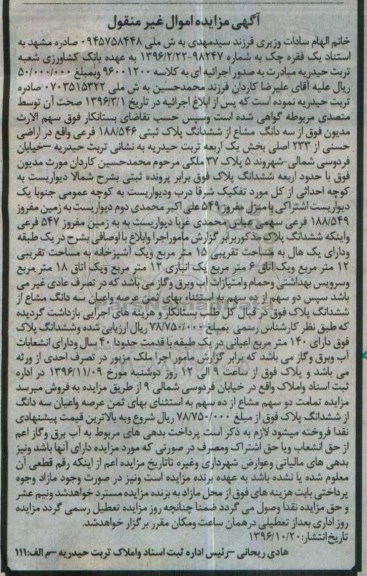 آگهی مزایده اموال غیر منقول
خانم الهام سادات وزیری فرزند سیدمهدی به ش ملی ۰۹۴۵۷۵۸۴۴۸ صادره مشهد به
استناد یک فقره چک به شماره ۹۸۲۴۷-۱۳۹۶/۲/۲۲ به عهده بانک کشاورزی شعبه
تربت حیدریه مبادرت به صدور اجرائیه ای به کلاسه ۹۶۰۰۱۲۰۰ وبمبلغ ۵۰/۰۰۰/۰۰۰
ریال علیه آقای علیرضا کاردان فرزند محمدحسین به ش ملی ۰۷۰۳۵۱۵۳۲۲ صادره
تربت حیدریه نموده است که پس از ابلاغ اجرائیه در تاریخ ۱۳۹۶/۳/۱ صحت آن توسط
متصدی مربوطه گواهی شده است وسپس حسب تقاضای بستانکار فوق سهم الارث
مدیون فوق از سه دانگ مشاع از ششدانگ پلاک ثبتی ۱۸۸/۵۴۶ فرعی واقع در اراضی
حسنی از ۲۳۳ اصلی بخش یک اربعه تربت حیدریه به نشانی تربت حیدریه -خیابان
فردوسی شمالی-شهروند ۵ پلاک ۳۷ ملکی مرحوم محمدحسین کاردان مورث مدیون
فوق با حدود اربعه ششدانگ پلاک فوق برابر پرونده ثبتی بشرح شمالا دیواریست به
کوچه احداثی از کل مورد تفکیک شرقا درب ودیواریست به کوچه عمومی جنوبا یک
دیواریست اشتراکی با منزل مفروز ۵۴۹ علی اکبر محمدی دوم دیواریست به زمین مفروز
۱۸۸/۵۴۹ فرعی سهمی عباس محمدی غربا دیواریست به به زمین مفروز ۵۴۷ فرعی
واینکه ششدانگ پلاک مذکوربرابر گزارش مأموراجرا وابلاغ با اوصافی بشرح در یک طبقه
ودارای یک هال به مساحت تقریبی ۱۵ متر مربع ویک آشپزخانه به مساحت تقریبی
۱۲ متر مربع ویک اتاق ۶ متر مربع یک انباری ۱۲ متر مربع ویک اتاق ۱۸ متر مربع
وسرویس بهداشتی وحمام وامتیازات آب وبرق وگاز می باشد که در تصرف عادی غیر می
باشد سپس دو سهم از ده سهم به استثناء بهای ثمن عرصه واعیان سه دانگ مشاع از
ششدانگ پلاک فوق در قبال کل طلب بستانکار و هزینه های اجرایی بازداشت گردیده
که طبق نظر کارشناس رسمی بمبلغ ۷۸/۷۵۰/۰۰۰ ریال ارزیابی شده وششدانگ پلاک
فوق دارای ۱۴۰ متر مربع اعیانی در یک طبقه با قدمت حدودا ۴۰ سال ودارای انشعابات
آب وبرق وگاز می باشد که برابر گزارش مأمور اجرا ملک مزبور در تصرف احدی از ورثه
می باشد و پلاک فوق از ساعت ۹ الی ۱۲ روز دوشنبه مورخ ۱۳۹۶/۱۱/۰۹ در اداره
ثبت اسناد واملاک واقع در خیابان فردوسی شمالی ۹ از طریق مزایده به فروش میرسد
مزایده تمامت دو سهم مشاع از ده سهم به استثنای بهای ثمن عرصه واعیان سه دانگ
از ششدانگ پلاک فوق از مبلغ ۷۸/۷۵۰/۰۰۰ ریال شروع وبه بالاترین قیمت پیشنهادی
نقدا فروخته میشود لازم به ذکر است پرداخت بدهی های مربوط به آب برق وگاز اعم
از حق انشعاب ویا حق اشتراک ومصرف در صورتی که مورد مزایده دارای آنها باشد ونیز
بدهی های مالیاتی وعوارض شهرداری وغیره تاتاریخ مزایده اعم از اینکه رقم قطعی آن
معلوم شده یا نشده باشد به عهده برنده مزایده است ونیز در صورت وجود مازاد وجوه
پرداختی بابت هزینه های فوق از محل مازاد به برنده مزایده مسترد خواهدشد ونیم عشر
و حق مزایده نقدا وصول می گردد ضمناً چنانچه روز مزایده تعطیل رسمی گردد مزایده
روز اداری بعداز تعطیلی درهمان ساعت ومکان مقرر برگزار خواهدشد.
تاریخ انتشار:۱۳۹۶/۱۰/۲۰
هادی ریحانی -رئیس اداره ثبت اسناد واملاک تربت حیدریه -م الف:۱۱۱